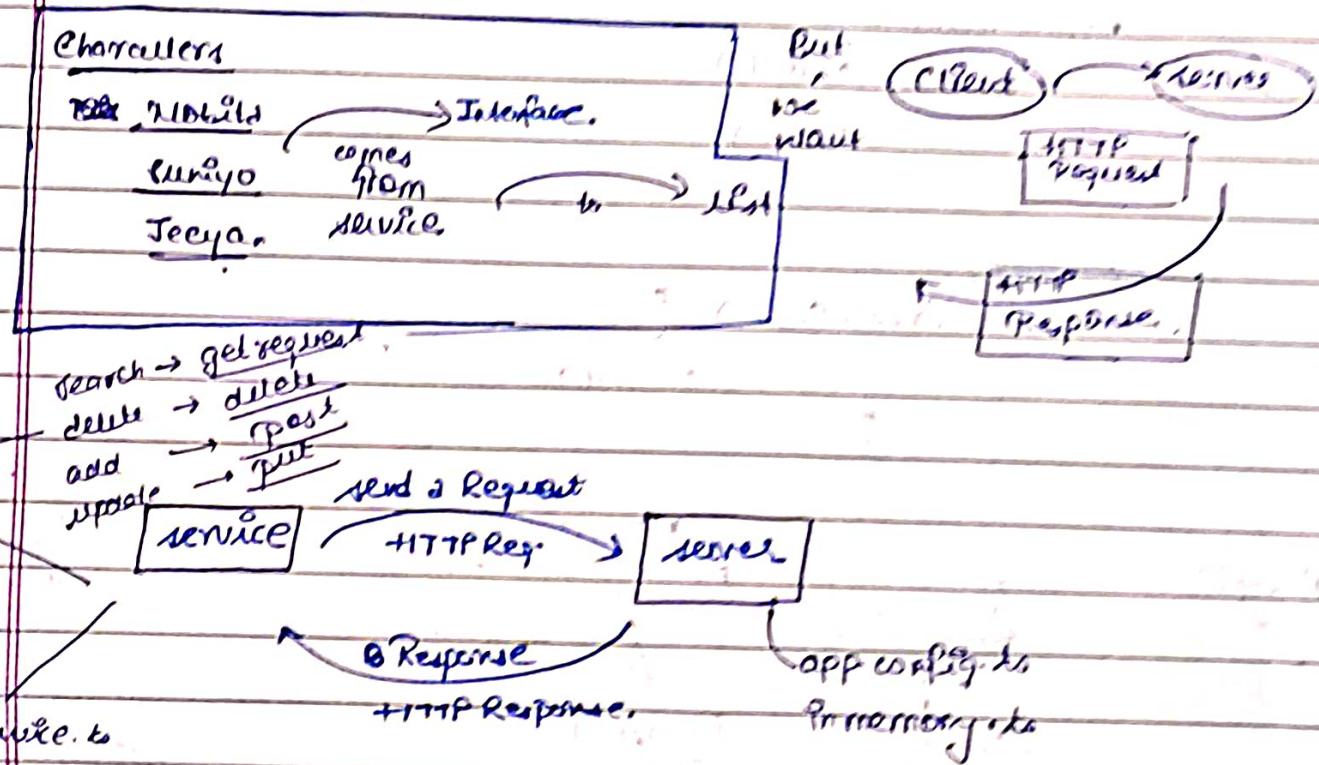 Characters
Nobita → Interface.
Suniyo
Jecya.
comes
from
service. to → list
But
we
want
Client → server
HTTP
request
HTTP
Response.
search → get request
delete → delete
add → post
update → put
send a Request
service
HTTP Req.
server
Response
HTTP Response.
app config.ts
Inmemory.ts